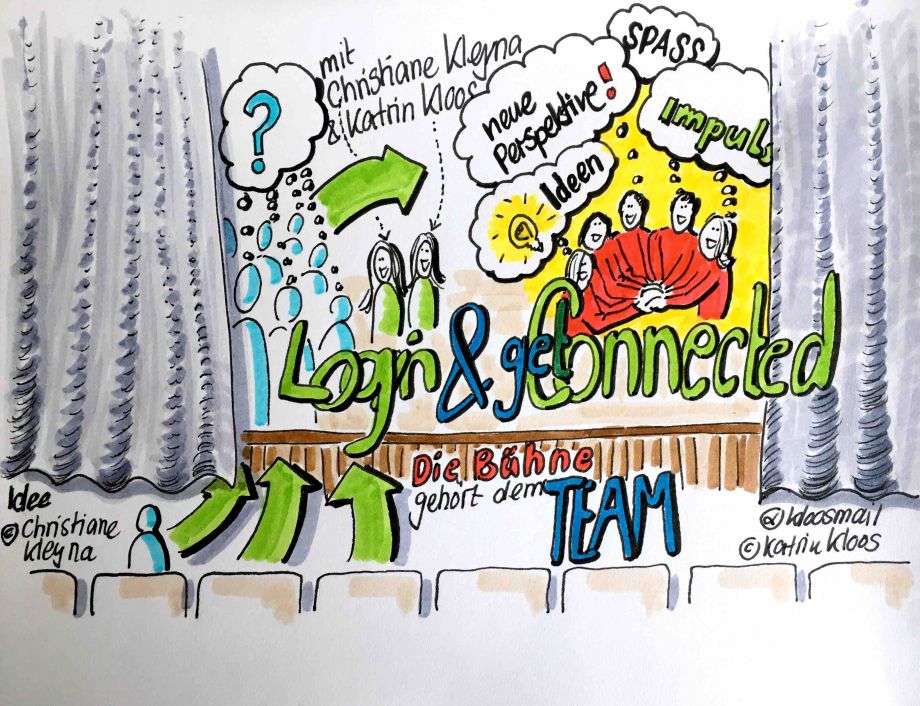 ?
mit
Christiane Kleyna
& Katrin Kloos
SPASS
neue
Perspektive!
Impuls
Ideen
Login & get Connected
Die Bühne
gehört dem
TEAM
Idee
© Christiane
Kleyna
@kloosmail
© Katrin Kloos